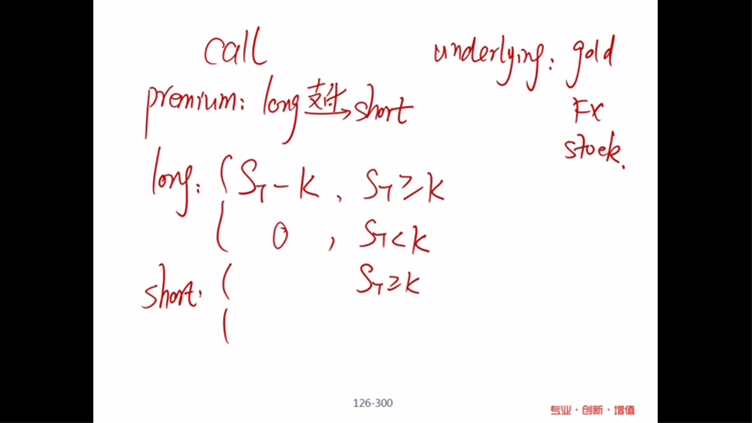 call
premium: long 支付→ short
underlying: gold
FX
stock.
long: { S_T - K , S_T ≥ K
0 , S_T < K
short: { S_T ≥ K
126-300
专业·创新·增值